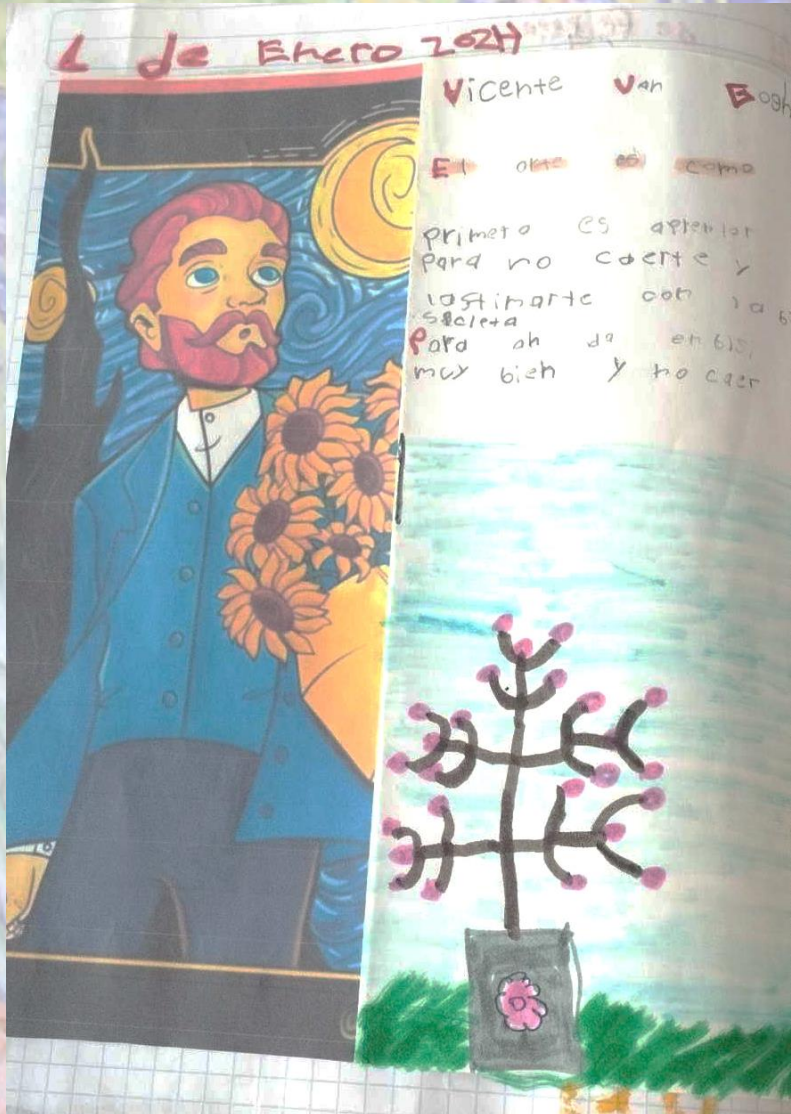 1 de Enero 2024
Vicente Van Gogh
El arte es como
primero es aprender
para no caerte y
lastimarte con la bi
sicleta
Para an da en bisi
muy bien y no caer